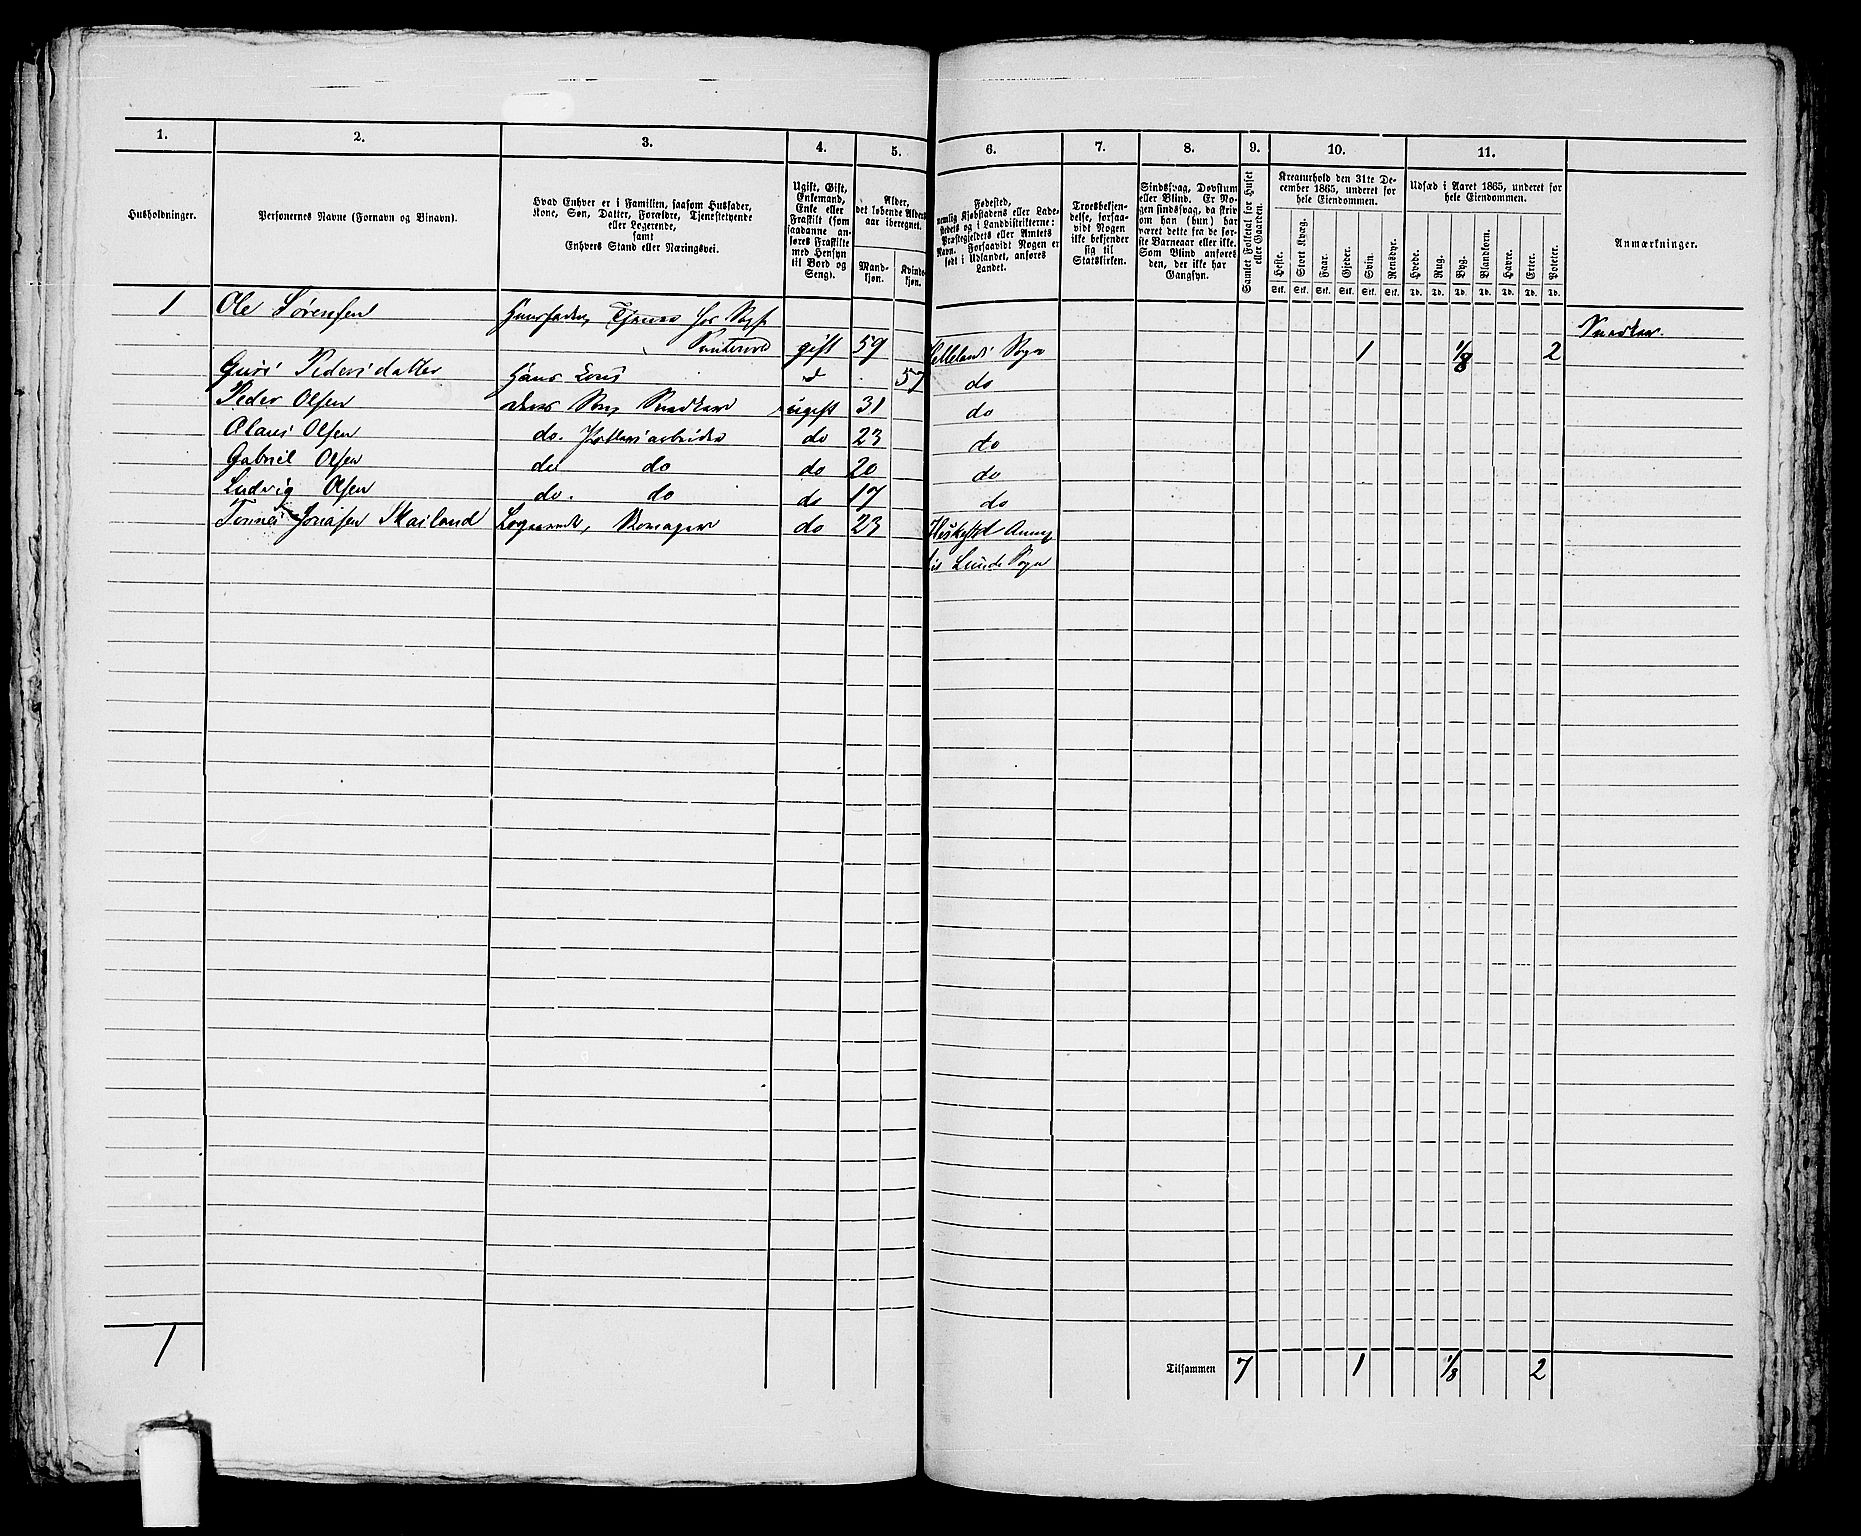 1. 2. 3. 4. 5. 6. 7. 8. 9. 10. 11.
Husholdninger.
Personernes Navne (Fornavn og Binavn).
Hvad Enhver er i Familien, saasom Husfader,
Kone, Søn, Datter, Forældre, Tjenestetyende
eller Logerende,
samt
Enhvers Stand eller Næringsvei.
Ugift, Gift,
Enkemand,
Enke eller
Fraskilt (som
saadanne an-
føres Fraskilte
med Hensyn
til Bord og
Seng).
Alder,
det løbende Alders-
aar iberegnet.
Mand-
kjøn.
Kvinde-
kjøn.
Fødested,
nemlig Kjøbstadens eller Lade-
stedets og i Landdistrikterne:
Præstegjeldets eller Amtets
Navn. Forsaavidt Nogen er
født i Udlandet, anføres
Landet.
Troesbekjen-
delse, forsaa-
vidt Nogen
ikke bekjender
sig til
Statskirken.
Sindssvag, Døvstum
eller Blind. Er No-
gen sindssvag, da skriv
om han (hun) har
været dette fra de før-
ste Barneaar eller ikke.
Som Blind ansøres
den, der ikke har
Gangsyn.
Samlet Folketal for Huset
eller Gaarden.
Kreaturhold den 31te De-
cember 1865, underet for
hele Eiendommen.
Heste. Stort Kvæg. Faar. Gjeder. Svin. Rensdyr.
Stk. Stk. Stk. Stk. Stk. Stk.
Udsæd i Aaret 1865, underet for
hele Eiendommen.
Hvede. Rug. Byg. Blandkorn. Havre. Erter. Poteter.
Td. Td. Td. Td. Td. Td. Td.
Anmærkninger.
1 Ole Sørensen Huusfader, Tjener hos
gift 59 Sogn 1 1/8 2 Snedker.
Guri Pedersdatter Hans Kone d 57 do
Peder Olsen deres Søn Snedker ugift 31 do
Olaus Olsen do. arbeider do 23 do
Gabriel Olsen do do do 20 do
Ludvig Olsen do. do do 17 do
Tønnes Jonasen Skailand Logerende, Skomager do 23 Heskestad Annex
til Lunde Sogn
1 Tilsammen 7 1 1/8 2